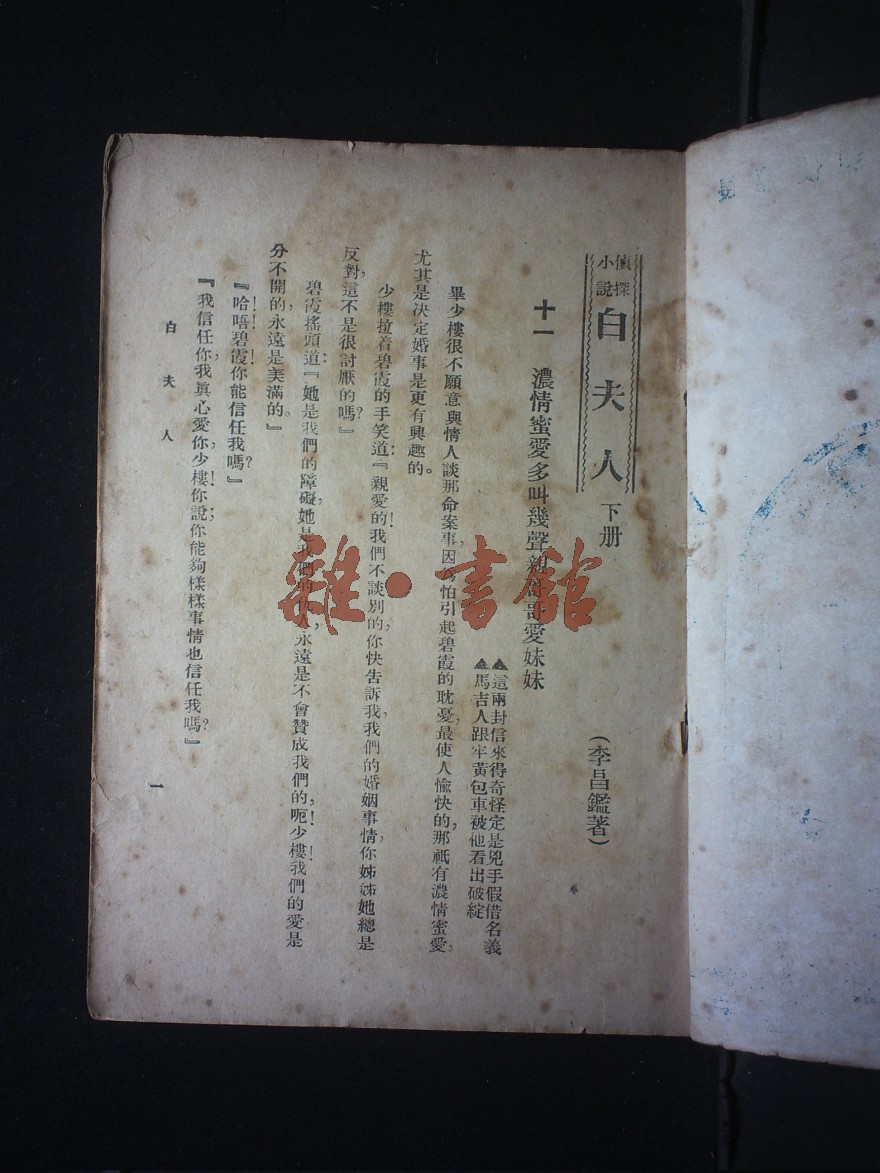 偵探小說 白夫人 下册
(李昌鑑著)
十一 濃情蜜愛多叫幾聲親哥哥愛妹妹
▲這兩封信來得奇怪定是兇手假借名義
▲馬吉人跟牢黃包車被他看出破綻
畢少樓很不願意與情人談那命案事,因爲怕引起碧霞的耽憂,最使人愉快的,那祇有濃情蜜愛,
尤其是決定婚事是更有興趣的。
少樓拉着碧霞的手笑道:『親愛的!我們不談別的,你快告訴我,我們的婚姻事情,你姊姊她總是
反對,這不是很討厭的嗎?』
碧霞搖頭道:『她是我們的障礙,她是我們的仇人,永遠是不會贊成我們的,呃!少樓!我們的愛是
分不開的,永遠是美滿的。』
『哈!唔!碧霞!你能信任我嗎?』
『我信任你,我眞心愛你,少樓!你說;你能夠樣樣事情也信任我嗎?』
白夫人
一
雜·書館